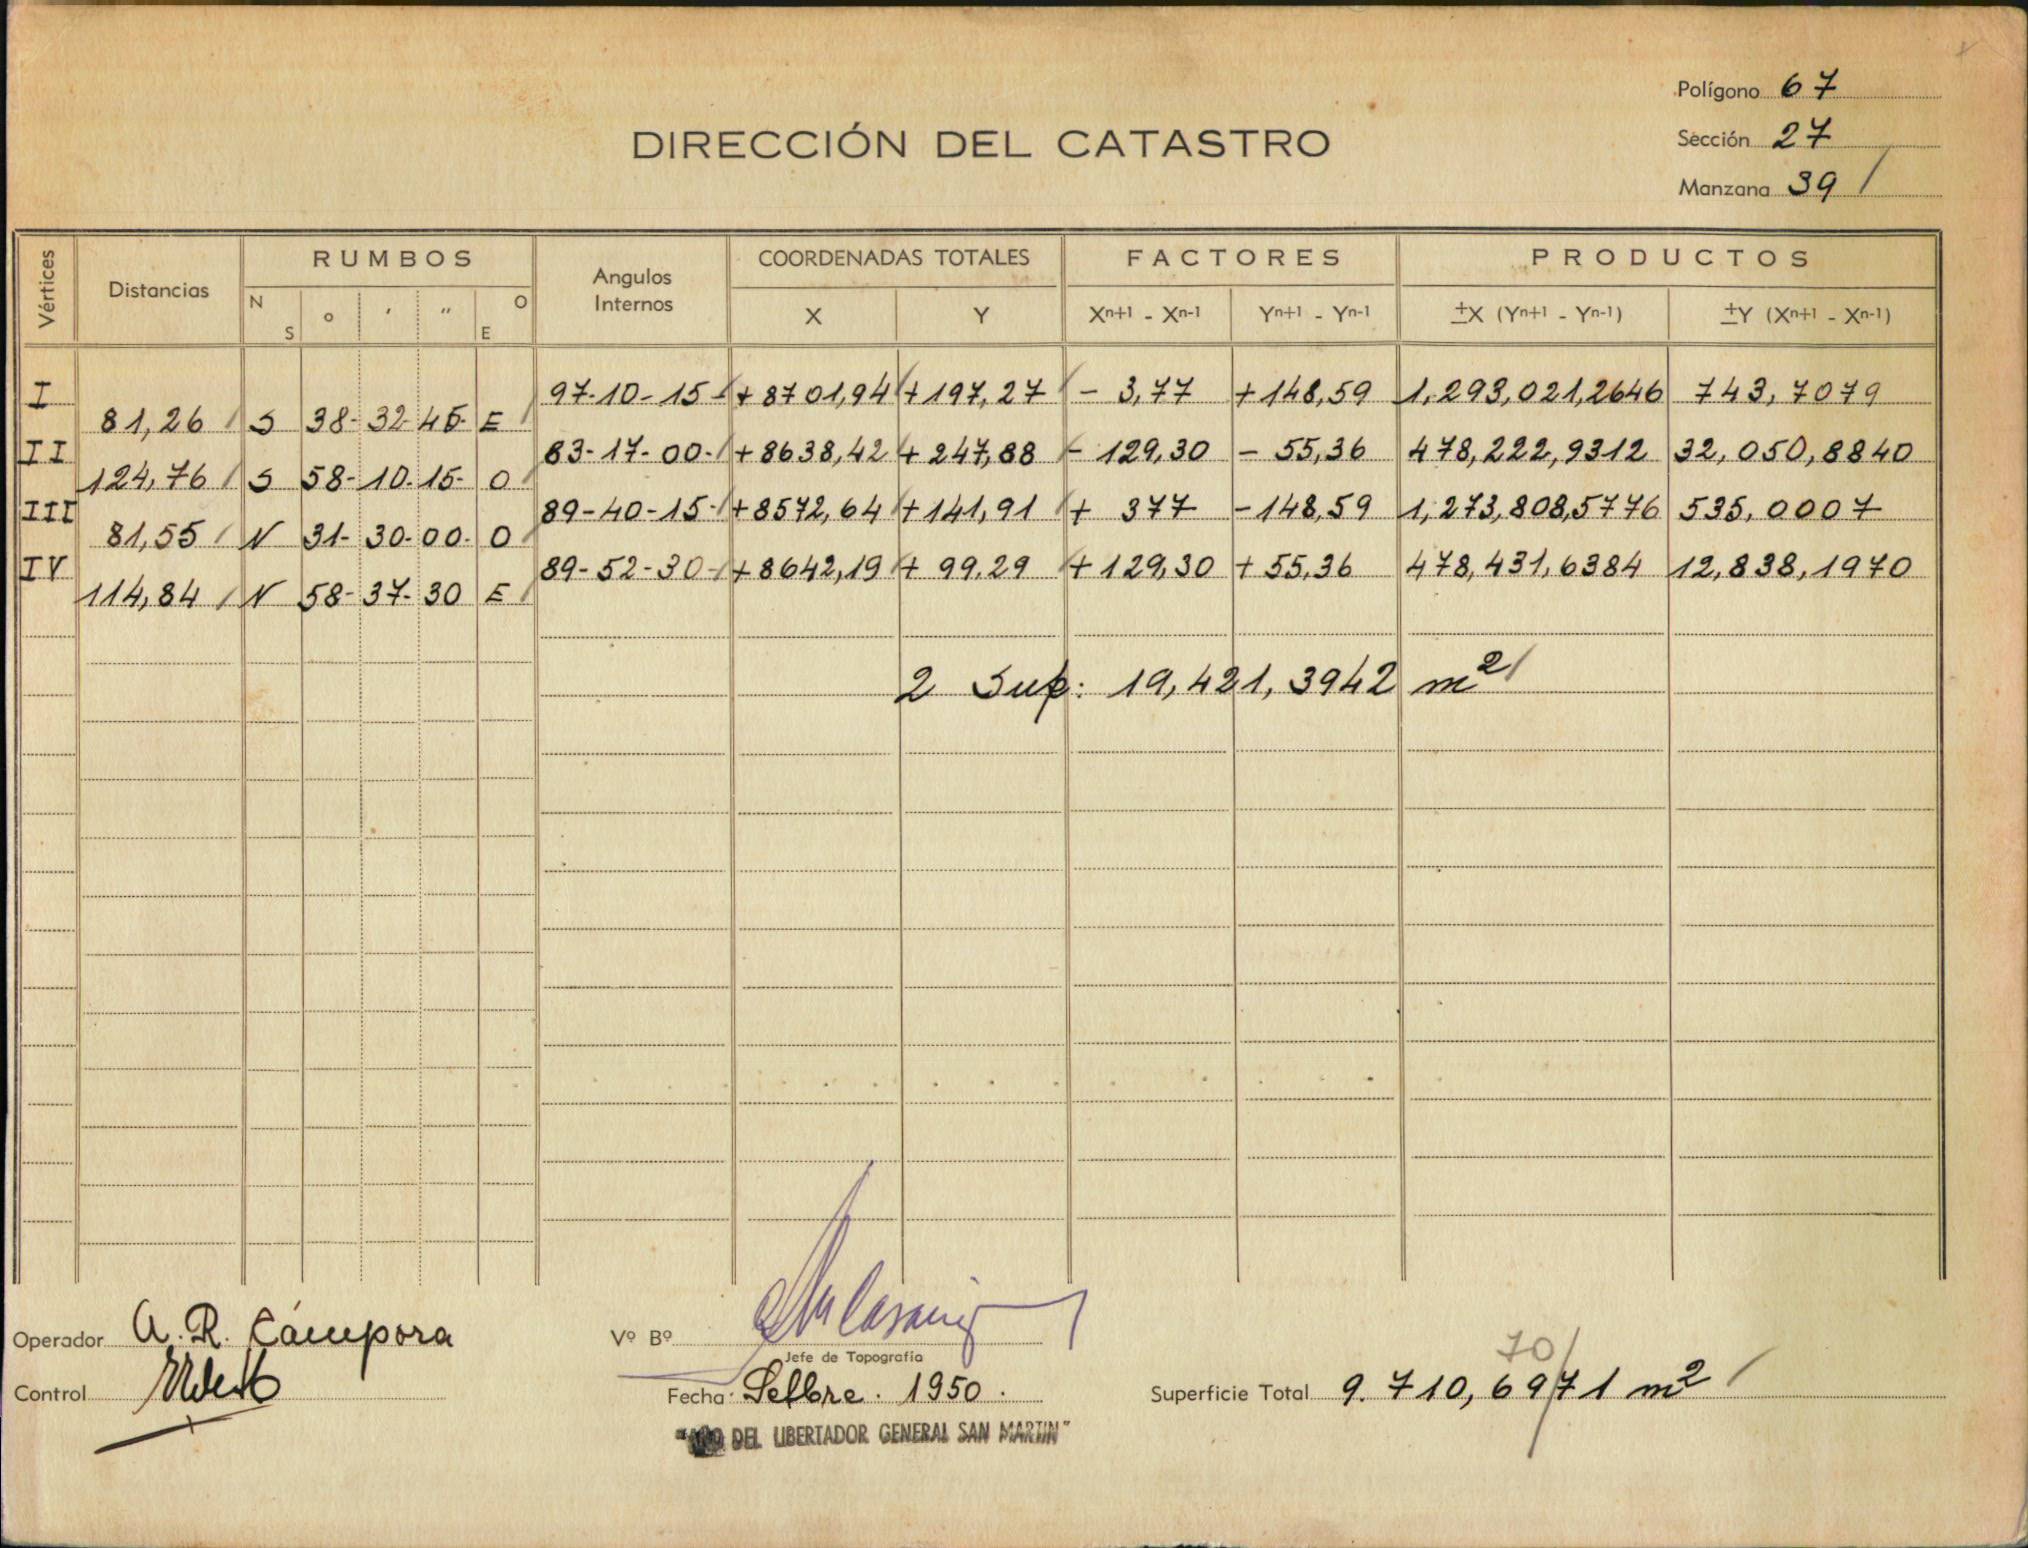 Polígono 67
DIRECCIÓN DEL CATASTRO
Sección 27
Manzana 39 /
Vértices Distancias RUMBOS Angulos Internos COORDENADAS TOTALES FACTORES PRODUCTOS
N S ° ' " O E X Y Xn+1 - Xn-1 Yn+1 - Yn-1 ±X (Yn+1 - Yn-1) ±Y (Xn+1 - Xn-1)
I 97-10-15- +8701,94 +197,27 - 3,77 +148,59 1,293,021,2646 743,7079
81,26 S 38-32-45- E
II 83-17-00- +8638,42 +247,88 - 129,30 - 55,36 478,222,9312 32,050,8840
124,76 S 58-10-15- O
III 89-40-15- +8572,64 +141,91 + 377 -148,59 1,273,808,5776 535,0007
81,55 N 31-30-00- O
IV 89-52-30- +8642,19 + 99,29 +129,30 +55,36 478,431,6384 12,838,1970
114,84 N 58-37-30 E
2 Sup: 19,421,3942 m²
Operador A. R. Cámpora
Vº Bº
Jefe de Topografía
70
Control
Fecha: Setbre. 1950.
Superficie Total 9.710,6971 m²
DEL LIBERTADOR GENERAL SAN MARTIN"